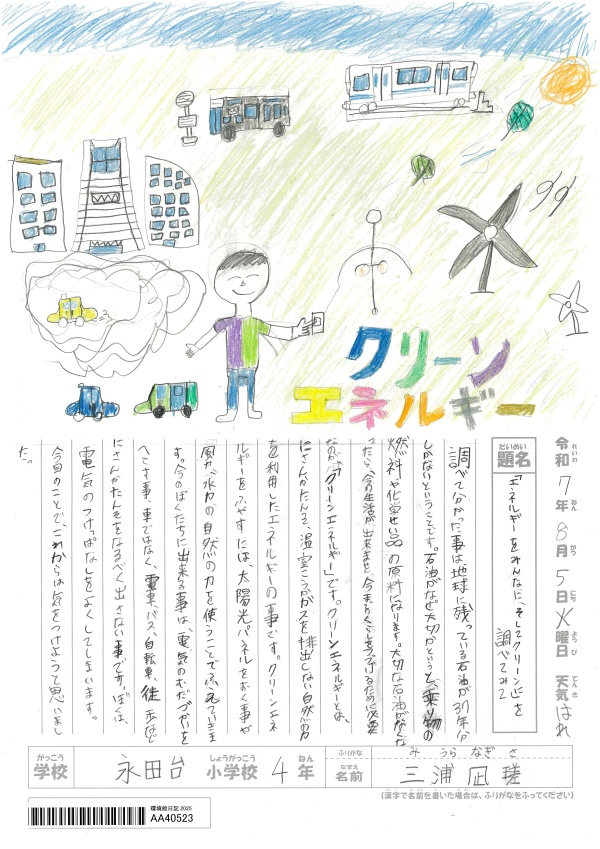 クリーン
エネルギー
令和7年8月5日火曜日 天気 はれ
れいわ ねん がつ にち ようび てんき
だいめい
題名
「エネルギーをみんなに、そしてクリーンに」を
調べてみて
調べて分かった事は地球に残っている石油が37年分
しかないということです。石油がなぜ大切かというと、乗り物の
燃料や化学せい品の原料になります。大切な石油がなくな
ったら、今の生活が出来ません。今まおくらしをつづけるために必要
なのが「クリーンエネルギー」です。クリーンエネルギーとは、
にさんかたんそ、温室こうかガスを排出しない自然の力
を利用したエネルギーの事です。クリーンエネ
ルギーをふやすには、太陽光パネルをおく事や
風力、水力の自然の力を使うことでふえていきま
す。今のぼくたちに出来る事は、電気のむだづかいを
へらす事、車ではなく、電車、バス、自転車、徒歩など
にさんかたんそをなるべく出さない事です。ぼくは、
電気のつけっぱなしをよくしてしまいます。
今回のことで、これからは気をつけようと思いまし
た。
がっこう しょうがっこう ねん ふりがな み うら なぎ さ
学校 永田台 小学校 4年 名前 三浦凪瑳
なまえ
(漢字で名前を書いた場合は、ふりがなをふってください)
環境絵日記 2025
AA40523